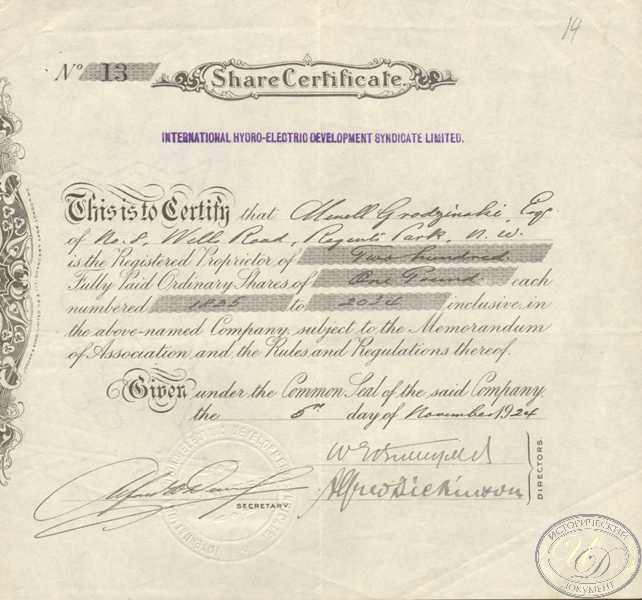 14
No 13
Share Certificate.
INTERNATIONAL HYDRO-ELECTRIC DEVELOPMENT SYNDICATE LIMITED.
This is to Certify that Grodzinski, Esq
of No. 8, Wells Road, Regents Park, N.W.
is the Registered Proprietor of Two hundred
Fully Paid Ordinary Shares of One Pound each
numbered 1825 to 2024 inclusive, in
the above-named Company, subject to the Memorandum
of Association and the Rules and Regulations thereof.
Given under the Common Seal of the said Company,
the day of November 1924
Alfred Dickinson
DIRECTORS.
SECRETARY.
ИСТОРИЧЕСКИЙ
ИД
ДОКУМЕНТ